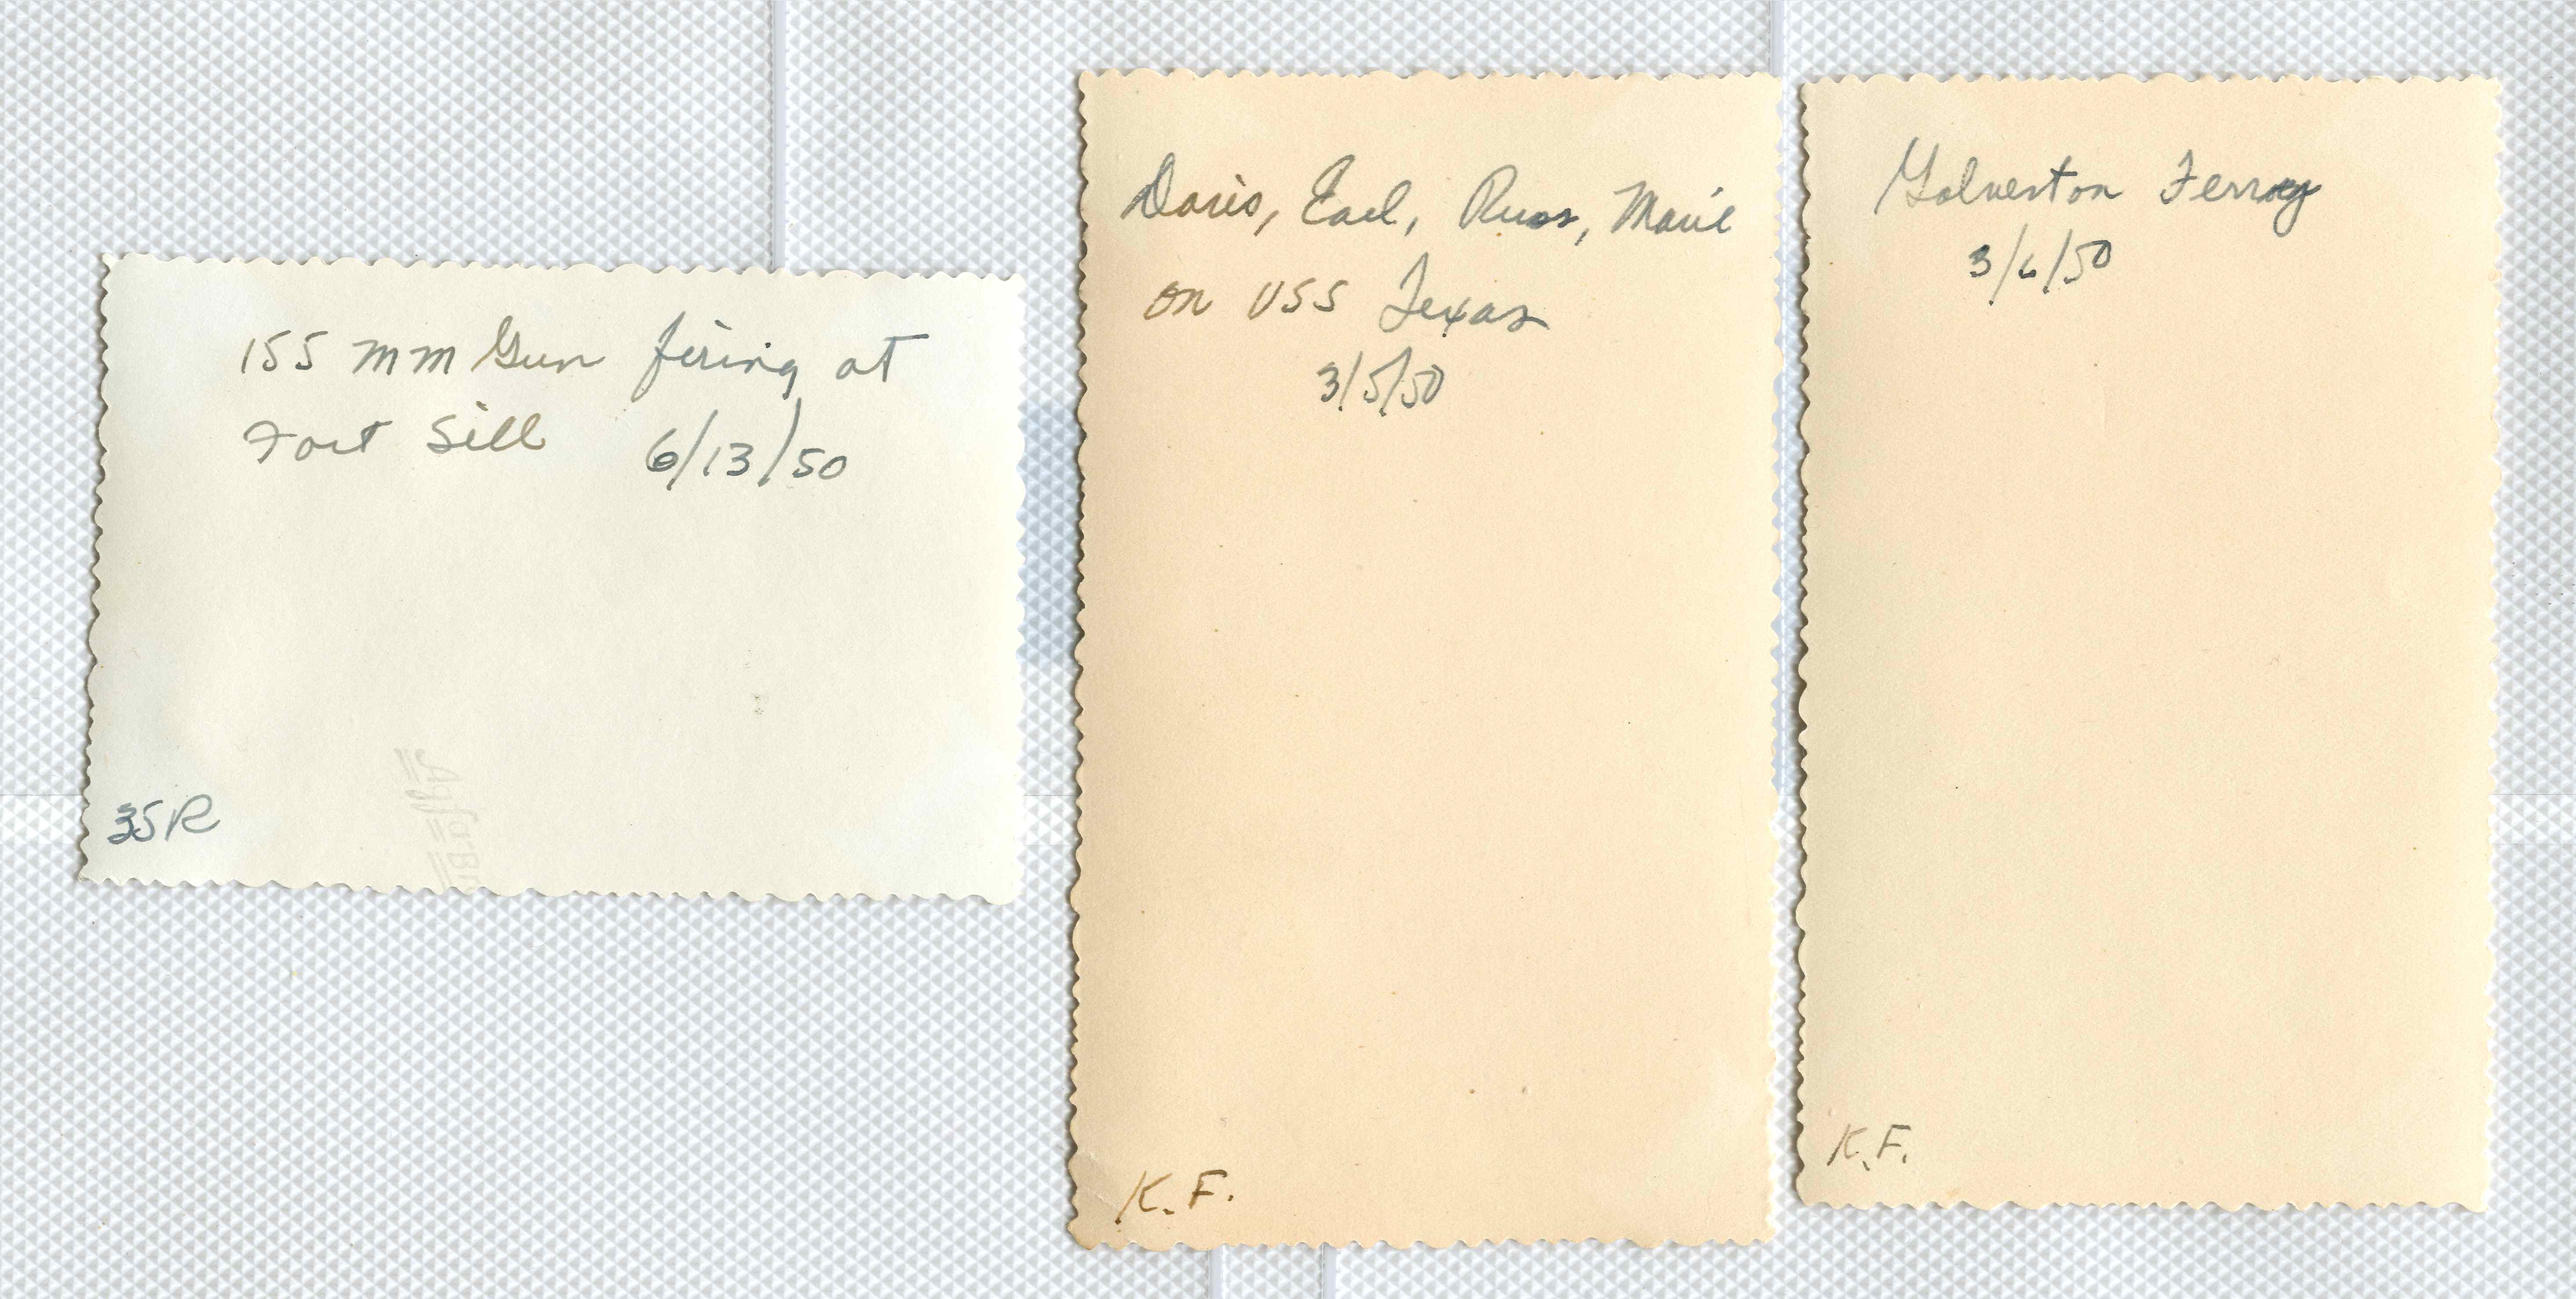 155 mm Gun firing at
Fort Sill 6/13/50
35R
Doris, Earl, Russ, Marie
on USS Texas
3/5/50
K.F.
Galveston Ferry
3/6/50
K.F.